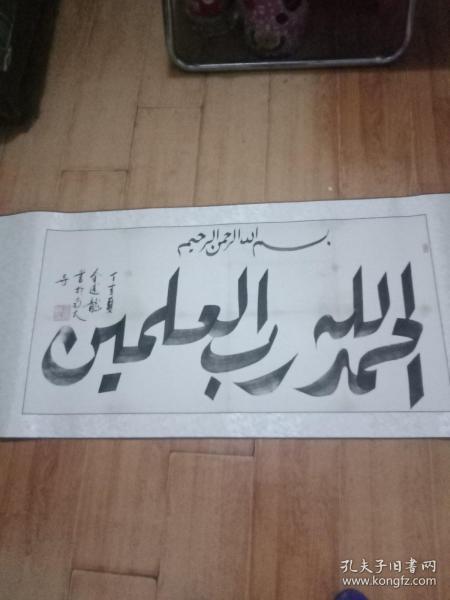 بسم الله الرحمن الرحيم
الحمد لله رب العلمين
丁亥夏
金進龍
書於南大
寺
孔夫子旧书网
www.kongfz.com